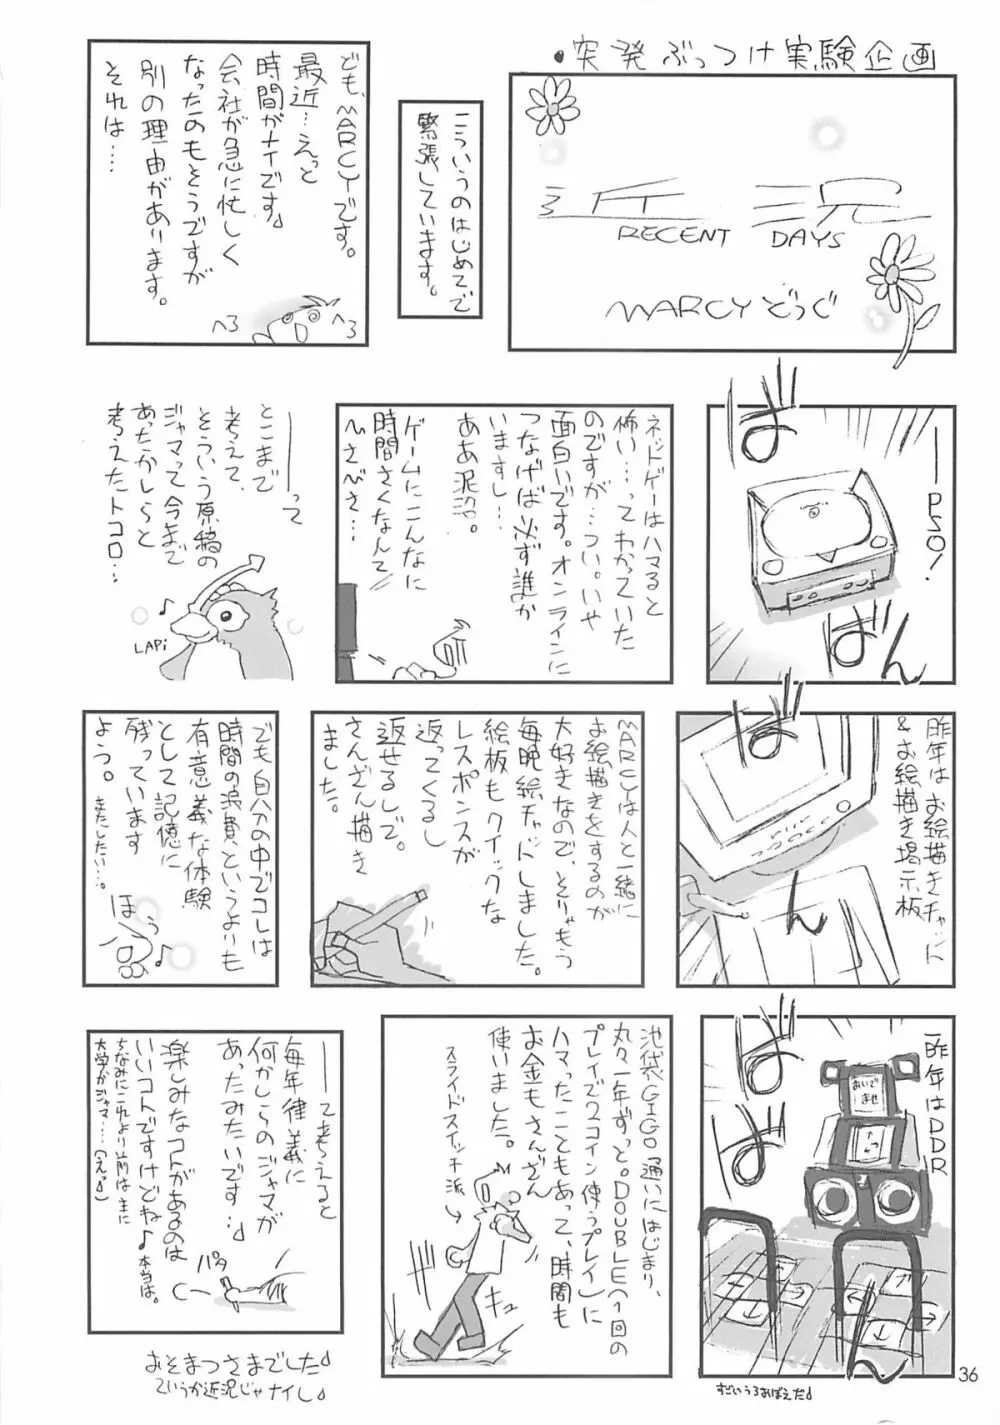 ・突発ぶっつけ実験企画
近況
RECENT DAYS
MARCYどうぐ
こういうのはじめてで
緊張しています。
ども、MARCYです。
最近…えっと
時間がナイです。
会社が急に忙しく
なったのもそうですが
別の理由があります。
それは…
へろ
へろ
──PSO!
ばばん
ネットゲーはハマると
怖い…ってわかっていた
のですが…つい。いや
面白いです。オンラインに
つなげば必ず誰か
いますし…
ああ泥沼。
ゲームにこんなに
時間さくなんて
いさびさ…
───って
とこまで
考えて、
そういう原稿の
ジャマって今まで
あったかしらと
考えたトコロ…
♪
LAPi
昨年はお絵描きチャット
&お絵描き掲示板
ばん
MARCYは人と一緒に
お絵描きをするのが
大好きなので、そりゃもう
毎晩絵チャットしました。
絵板もクイックな
レスポンスが
返ってくるし
返せるしで。
さんざん描き
ました。
でも自分の中でコレは
時間の浪費というよりも
有意義な体験
として記憶に
残っています
よう。
またしたい…。
ほぅ
♪
一昨年はDDR
ばばん
おいで
ませ
すごいうろおぼえだ♪
池袋GIGO通いにはじまり、
丸々一年ずっと。DOUBLE(1回の
プレイで2コイン使うプレイ)に
ハマったこともあって、時間も
お金もさんざん
使いました。
スライドスイッチ派
キュ
───て考えると
毎年律義に
何かしらのジャマが
あったみたいです:♪
楽しみなコトがあるのは
いいコトですけどね♪本当は。
ちなみにこれより以前は主に
大学がジャマ……(えっ♪)
パタ
おそまつさまでした♪
ていうか近況じゃナイし♪
36